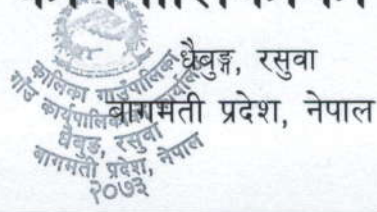 धैवुङ्ग, रसुवा
बागमती प्रदेश, नेपाल
कालिका गाउँपालिका
गाउँ कार्यपालिकाको कार्यालय
धैवुङ, रसुवा
बागमती प्रदेश, नेपाल
२०७३